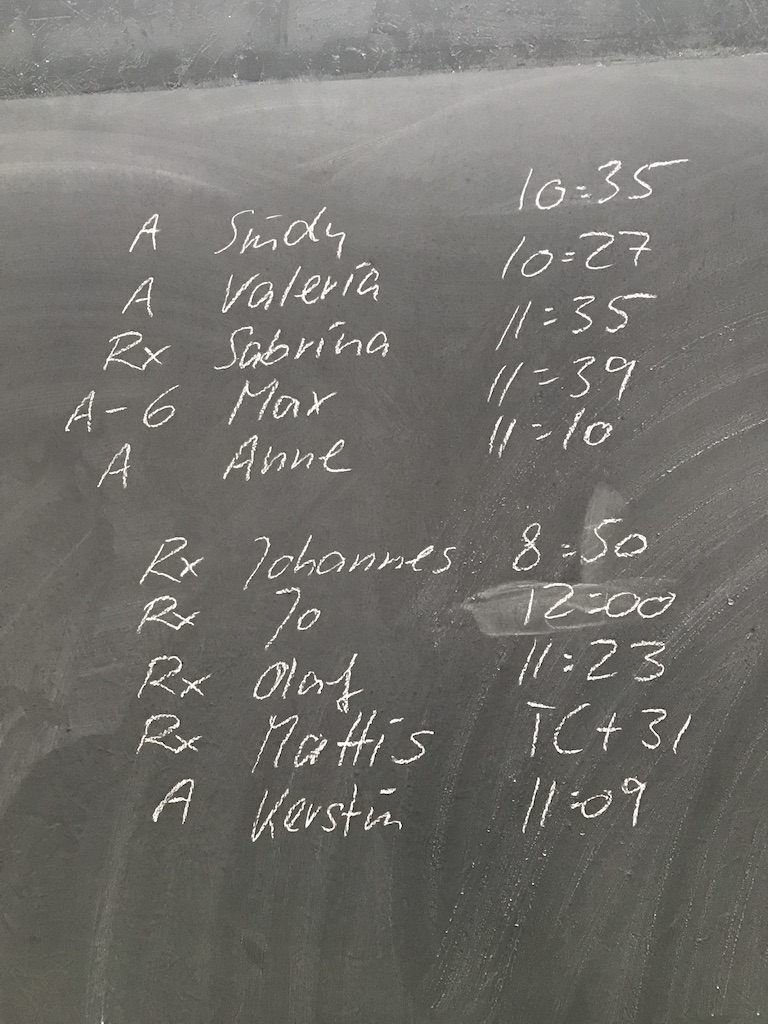 A Sindy 10:35
A Valeria 10:27
Rx Sabrina 11:35
A-6 Max 11:39
A Anne 11:10
Rx Johannes 8:50
Rx Jo 12:00
Rx Olaf 11:23
Rx Mattis TC+31
A Kerstin 11:09